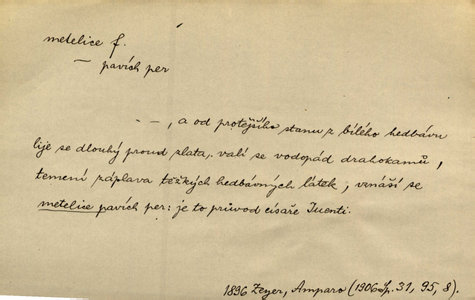 metelice f.
— pavích per
– –, a od protějšího stanu z bílého hedbávu
lije se dlouhý proud zlata, valí se vodopád drahokamů,
temení záplava těžkých hedbávných látek; vznáší se
metelice pavích per: je to průvod císaře Tuenti.
1896 Zeyer, Amparo (1906 Sp. 31, 95, 8).